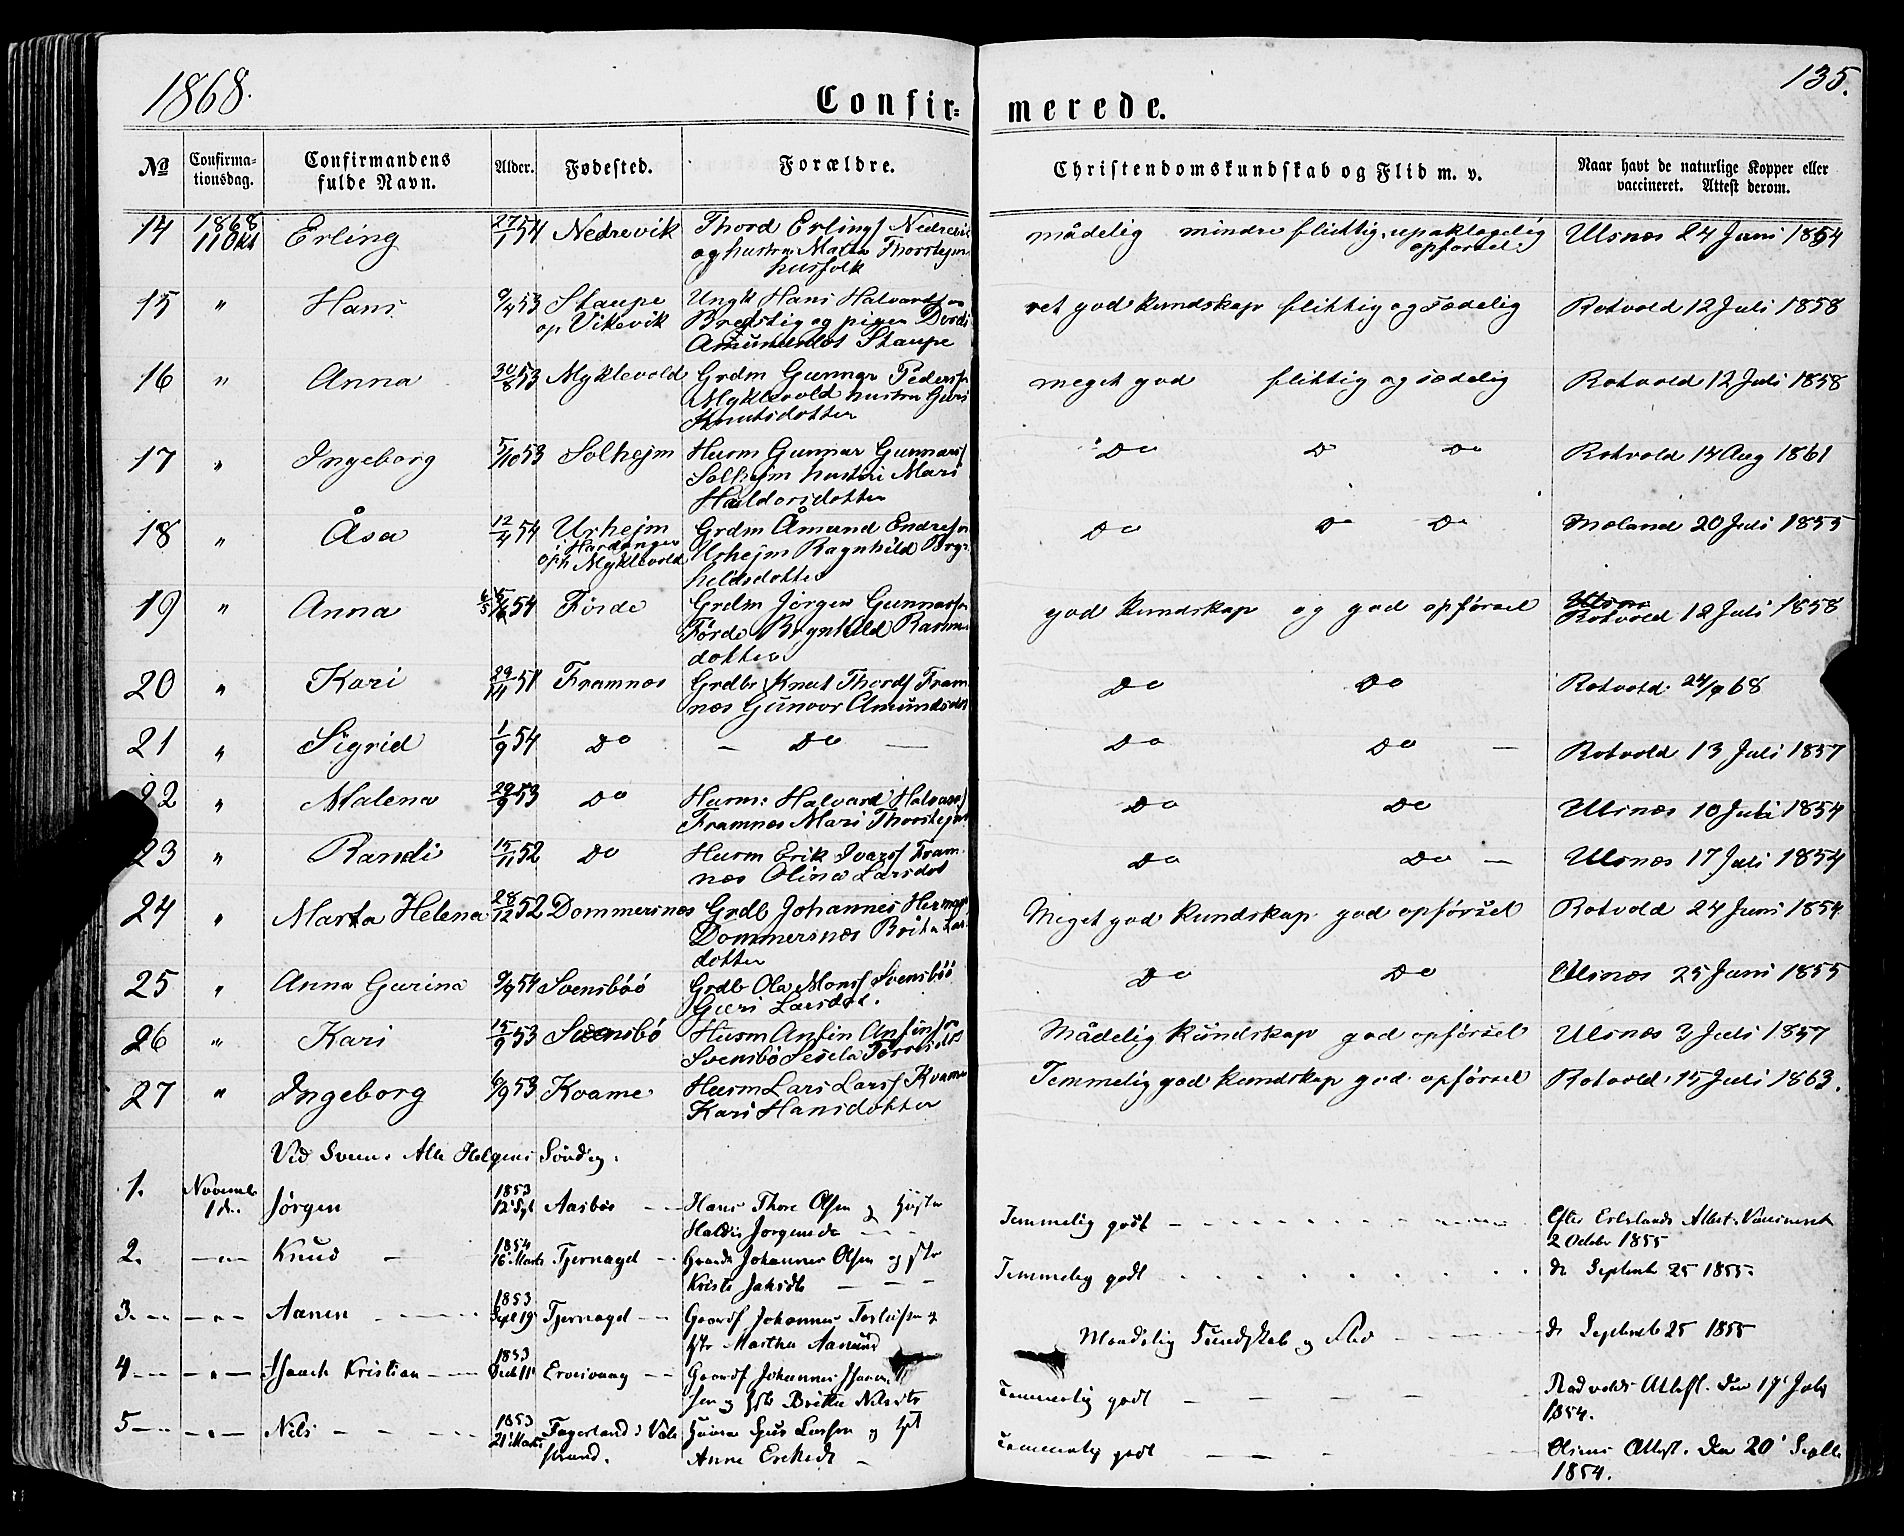 1868.
135.
Confir=
merede.
No
Confirma-
tionsdag.
Confirmandens
fulde Navn.
Alder.
Fødested.
Forældre.
Christendomskundskab og Flid m. v.
Naar havt de naturlige Kopper eller
vaccineret. Attest derom.
14 1868 11 Okt Erling 27/1 54 Nedrevik Thord Erlings Nedrevik
og hustru Marta Thorstejns
husfolk
mådelig mindre flittig, upaklagelig
opførsel. Ulsnes 24 Juni 1854
15 " Hans 9/4 53 Staupe
op Vikevik
Ungk Hans Halvards
og pigen Dordi
Amundsdot Staupe
ret god kundskap flittig og sædelig Rotvold 12 Juli 1858
16 " Anna 30/8 53 Myklevold Grdm Gunnar Peders
Myklevold hustru Guri
Knutsdotter
meget god flittig og sædelig Rotvold 12 Juli 1858
17 " Ingeborg 5/10 53 Solhejm Husm Gunnar Gunnars
Solhejm hustru Mari
Haldorsdotter
Do Do Do Rotvold 14 Aug 1861
18 " Åsa 12/4 54 Urhejm
i Hardanger
oph Myklevold
Grdm Åmund Endreson
Urhejm Ragnhild Bryn
hildsdotter
Do Do Do Moland 20 Juli 1855
19 " Anna 54 Førde Grdm Jørgen Gunnarson
Førde Brynhild Rasmus
dotter
god kundskap og god opførsel
Rotvold 12 Juli 1858
20 " Kari 29/11 51 Framnes Grdbr Knut Thords Fram
nes Gunvor Amundsdot
Do Do Rotvold 24/9 68
21 " Sigrid 1/9 54 Do – Do – Do Do – Rotvold 13 Juli 1857
22 " Malena 29/9 53 Do Husm: Halvard Halvars
Framnes Mari Thorstejns
Do Do Ulsnes 10 Juli 1854
23 " Randi 15/11 52 Do Husm Erik Ivars Fram
nes Olina Larsdot
Do Do – Ulsnes 17 Juli 1854
24 " Marta Helena 28/12 52 Dommersnes Grdb Johannes Hermans
Dommersnes Brita Lars
dotter
Meget god kundskap god opførsel Rotvold 24 Juni 1854
25 " Anna Gurina 9/9 54 Svensbøó Grdb Ola Mons Svensbøó
Guri Larsdot.
Do Do Ulsnes 25 Juni 1855
26 " Kari 15/9 53 Svensbø Husm Anfin Anfins
Svensbø Sesela
Mådelig kundskap god opførsel Ulsnes 3 Juli 1857
27 " Ingeborg 6/9 53 Kvame Husm Lars Lars Kvame
Kari Hansdotter
Temmelig god kundskap god opførsel Rotvold 15 Juli 1863.
Ved Alle Helgens Søndag.
1. Novemb 1 d. Jørgen 1853 12 Spt Aasbøe Hans Thore Olsen og Hustr
Jorgensdr
Temmelig godt
Attest. Vaccineret
2 October 1855
2. Knud 1854 16 Marts Tjernagel Johannes Olsen og Hstr
Temmelig godt do Septemb 25 1855.
3. Aanen 1853 Sept 19 Tjernagel Gaardf Johannes
Hstr Martha
Maadelig Kundskab og Flid do Septemb 25 1855
4 Isaach Kristian 1853 Decb 11 Gaardf Johannes
sen og Hstr Britha Nilsdtr
Temmelig godt Attest. den 17 July
1854.
5 Nils 1853 21 Marts Fagerland i Vale
strand.
Larsen og Hst
Anne
Temmelig godt Attest. den 20 Septb
1854.